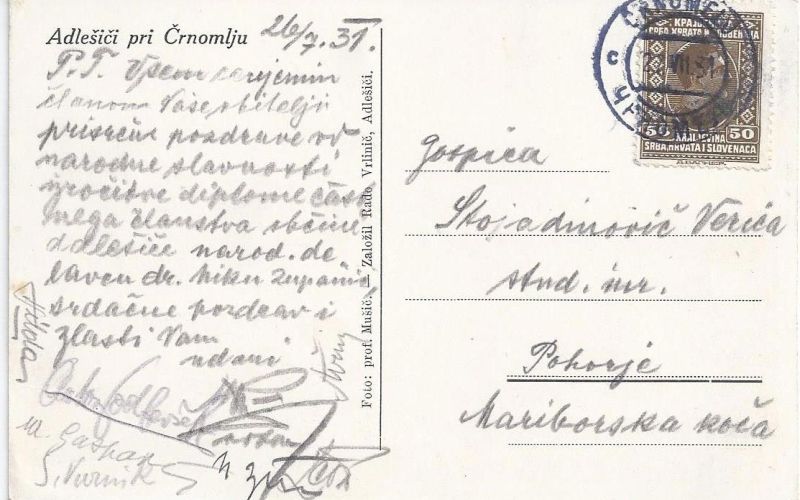 Adlešiči pri Črnomlju 26/7.31.
P. T. Vsem cenjenim
članom Vaše obitelji
prisrčne pozdrave od
narodne slavnosti
izročitve diplome čast
nega članstva občine
Adlešiče narod. de
lavcu dr. Niku Županič,
srdačne pozdrav i
zlasti Vam
udani
M. Gaspar
S. Vurnik
Foto: prof. Mušič. — Založil Rado Vrlinič, Adlešiči.
ČRNOMELJ
VII.31
КРАЉЕВИНА
СРБА, ХРВАТА И СЛОВЕНАЦА
50 50
KRALJEVINA
SRBA, HRVATA I SLOVENACA
Gospica
Stojadinović Verica
stud. iur.
Pohorje
Mariborska koča